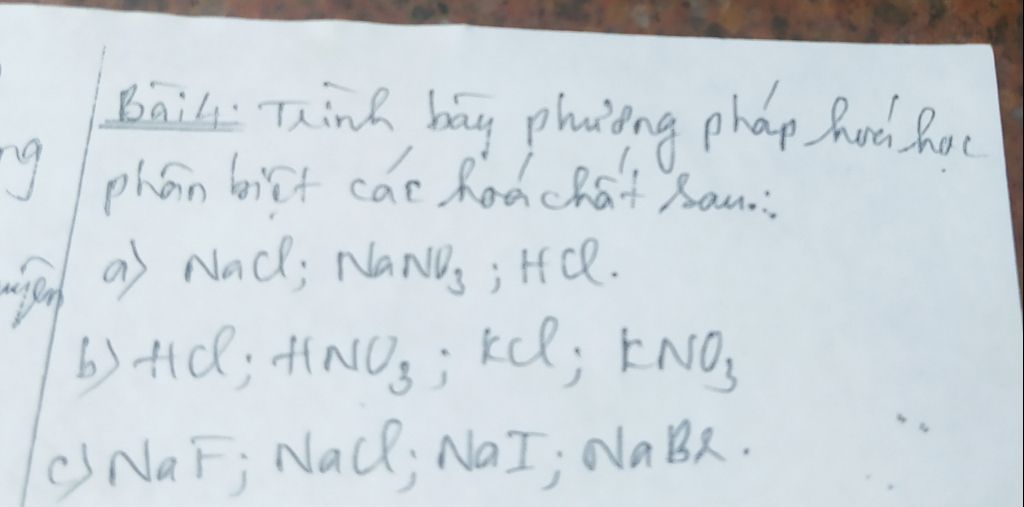 Bài 4: Trình bày phương pháp hoá học
phân biệt các hoá chất sau:
a) NaCl; NaNO₃; HCl.
b) HCl; HNO₃; KCl; KNO₃
c) NaF; NaCl; NaI; NaBr.